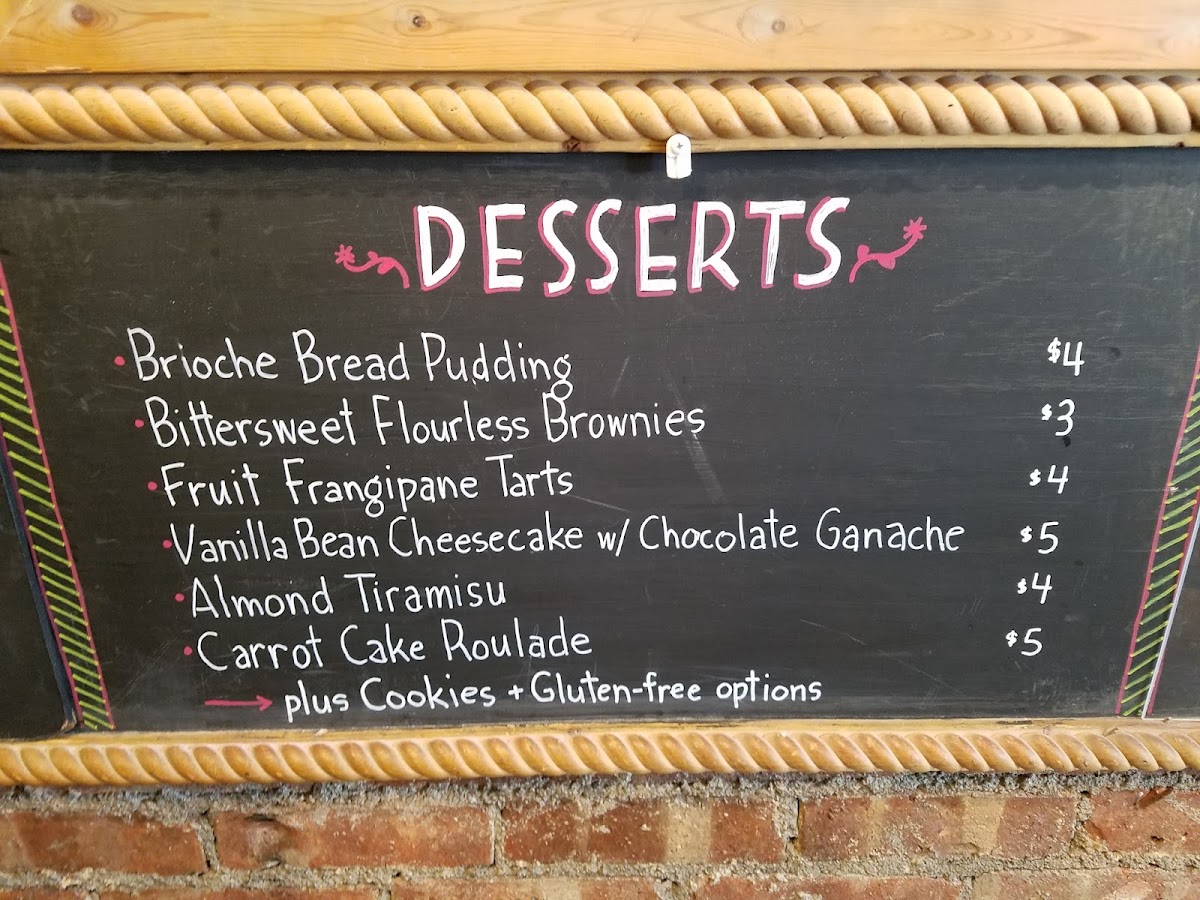 DESSERTS
• Brioche Bread Pudding $4
• Bittersweet Flourless Brownies $3
• Fruit Frangipane Tarts $4
• Vanilla Bean Cheesecake w/ Chocolate Ganache $5
• Almond Tiramisu $4
• Carrot Cake Roulade $5
→ plus Cookies + Gluten-free options